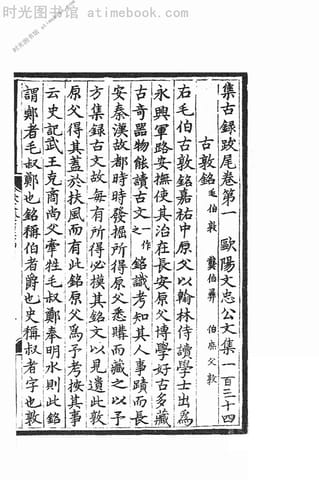 时光图书馆 - atimebook.com
集古錄跋尾卷第一　歐陽文忠公文集一百三十四
古敦銘 毛伯敦 龔伯彞 伯庶父敦
右毛伯古敦銘嘉祐中原父以翰林侍讀學士出爲
永興軍路安撫使其治在長安原父博學好古多藏
古奇器物能讀古文之一作銘識考知其人事蹟而長
安秦漢故都時時發掘所得原父悉購而藏之以予
方集錄古文故每有所得必摸其銘文以見遺此敦
原父得其蓋於扶風而有此銘原父爲予考按其事
云史記武王克商尚父牽牲毛叔鄭奉明水則此銘
謂鄭者毛叔鄭也銘稱伯者爵也史稱叔者字也敦
时光图书馆 - atimebook.com